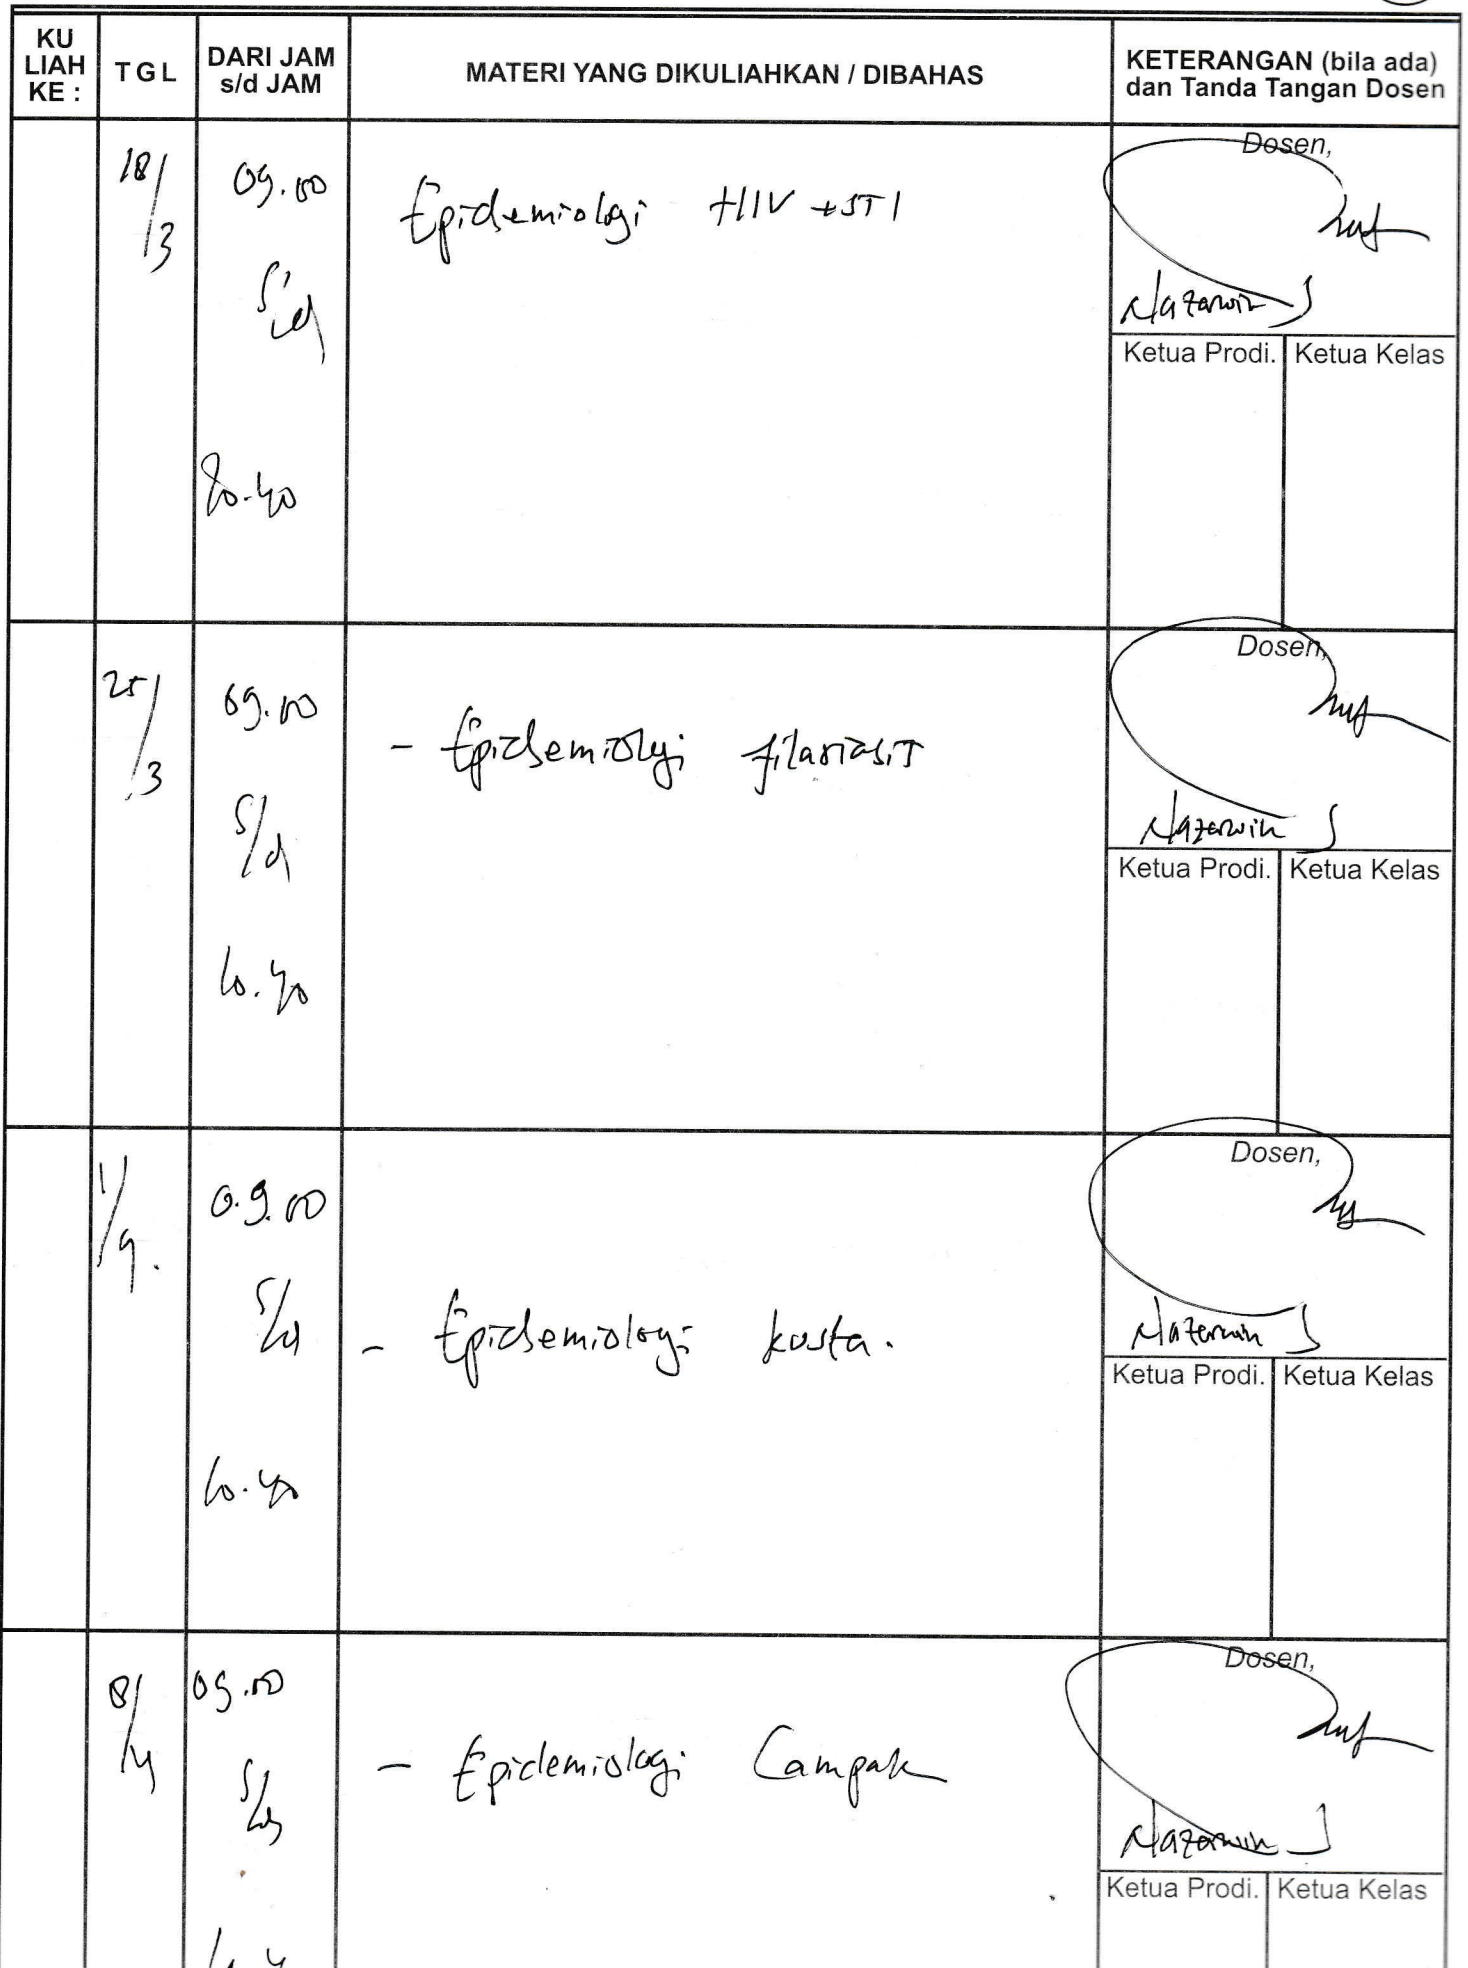 KU
LIAH
KE :
TGL
DARI JAM
s/d JAM
MATERI YANG DIKULIAHKAN / DIBAHAS
KETERANGAN (bila ada)
dan Tanda Tangan Dosen
18/3
09.00
s/d
10.40
Epidemiologi HIV + STI
Dosen,
Nazarwin S
Ketua Prodi.
Ketua Kelas
25/3
09.00
s/d
10.40
- Epidemiologi filariasis
Dosen,
Nazarwin S
Ketua Prodi.
Ketua Kelas
1/4.
0.9.00
s/d
10.40
- Epidemiologi kusta.
Dosen,
Nazarwin S
Ketua Prodi.
Ketua Kelas
8/4
09.00
s/d
- Epidemiologi Campak
Dosen,
Nazarwin S
Ketua Prodi.
Ketua Kelas